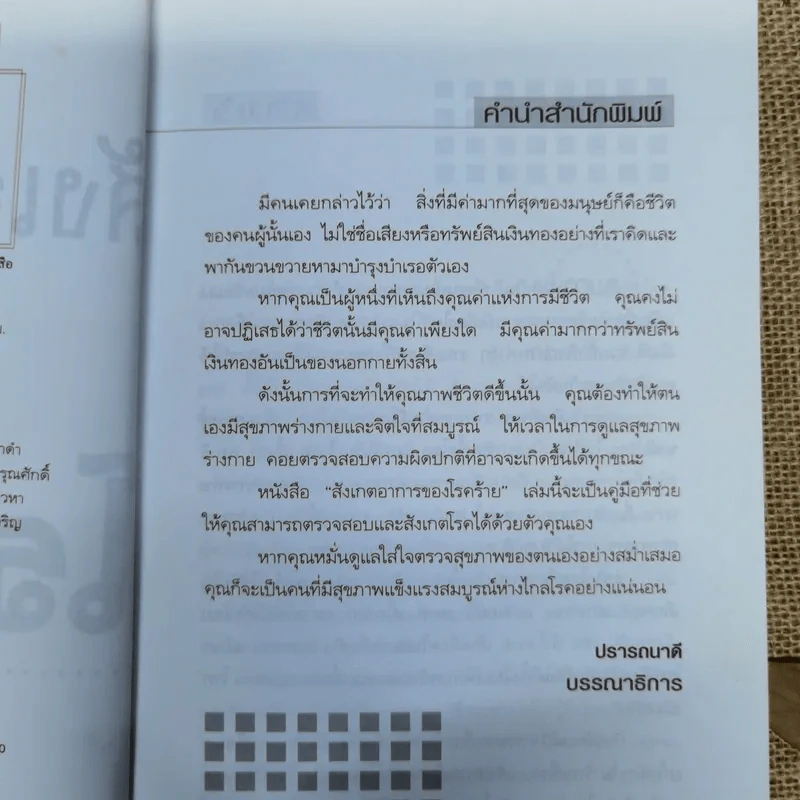 คำนำสำนักพิมพ์
มีคนเคยกล่าวไว้ว่า สิ่งที่มีค่ามากที่สุดของมนุษย์ก็คือชีวิต
ของคนผู้นั้นเอง ไม่ใช่ชื่อเสียงหรือทรัพย์สินเงินทองอย่างที่เราคิดและ
พากันขวนขวายหามาบำรุงบำเรอตัวเอง
หากคุณเป็นผู้หนึ่งที่เห็นถึงคุณค่าแห่งการมีชีวิต คุณคงไม่
อาจปฏิเสธได้ว่าชีวิตนั้นมีคุณค่าเพียงใด มีคุณค่ามากกว่าทรัพย์สิน
เงินทองอันเป็นของนอกกายทั้งสิ้น
ดังนั้นการที่จะทำให้คุณภาพชีวิตดีขึ้นนั้น คุณต้องทำให้ตน
เองมีสุขภาพร่างกายและจิตใจที่สมบูรณ์ ให้เวลาในการดูแลสุขภาพ
ร่างกาย คอยตรวจสอบความผิดปกติที่อาจจะเกิดขึ้นได้ทุกขณะ
หนังสือ "สังเกตอาการของโรคร้าย" เล่มนี้จะเป็นคู่มือที่ช่วย
ให้คุณสามารถตรวจสอบและสังเกตโรคได้ด้วยตัวคุณเอง
หากคุณหมั่นดูแลใส่ใจตรวจสุขภาพของตนเองอย่างสม่ำเสมอ
คุณก็จะเป็นคนที่มีสุขภาพแข็งแรงสมบูรณ์ห่างไกลโรคอย่างแน่นอน
ปรารถนาดี
บรรณาธิการ